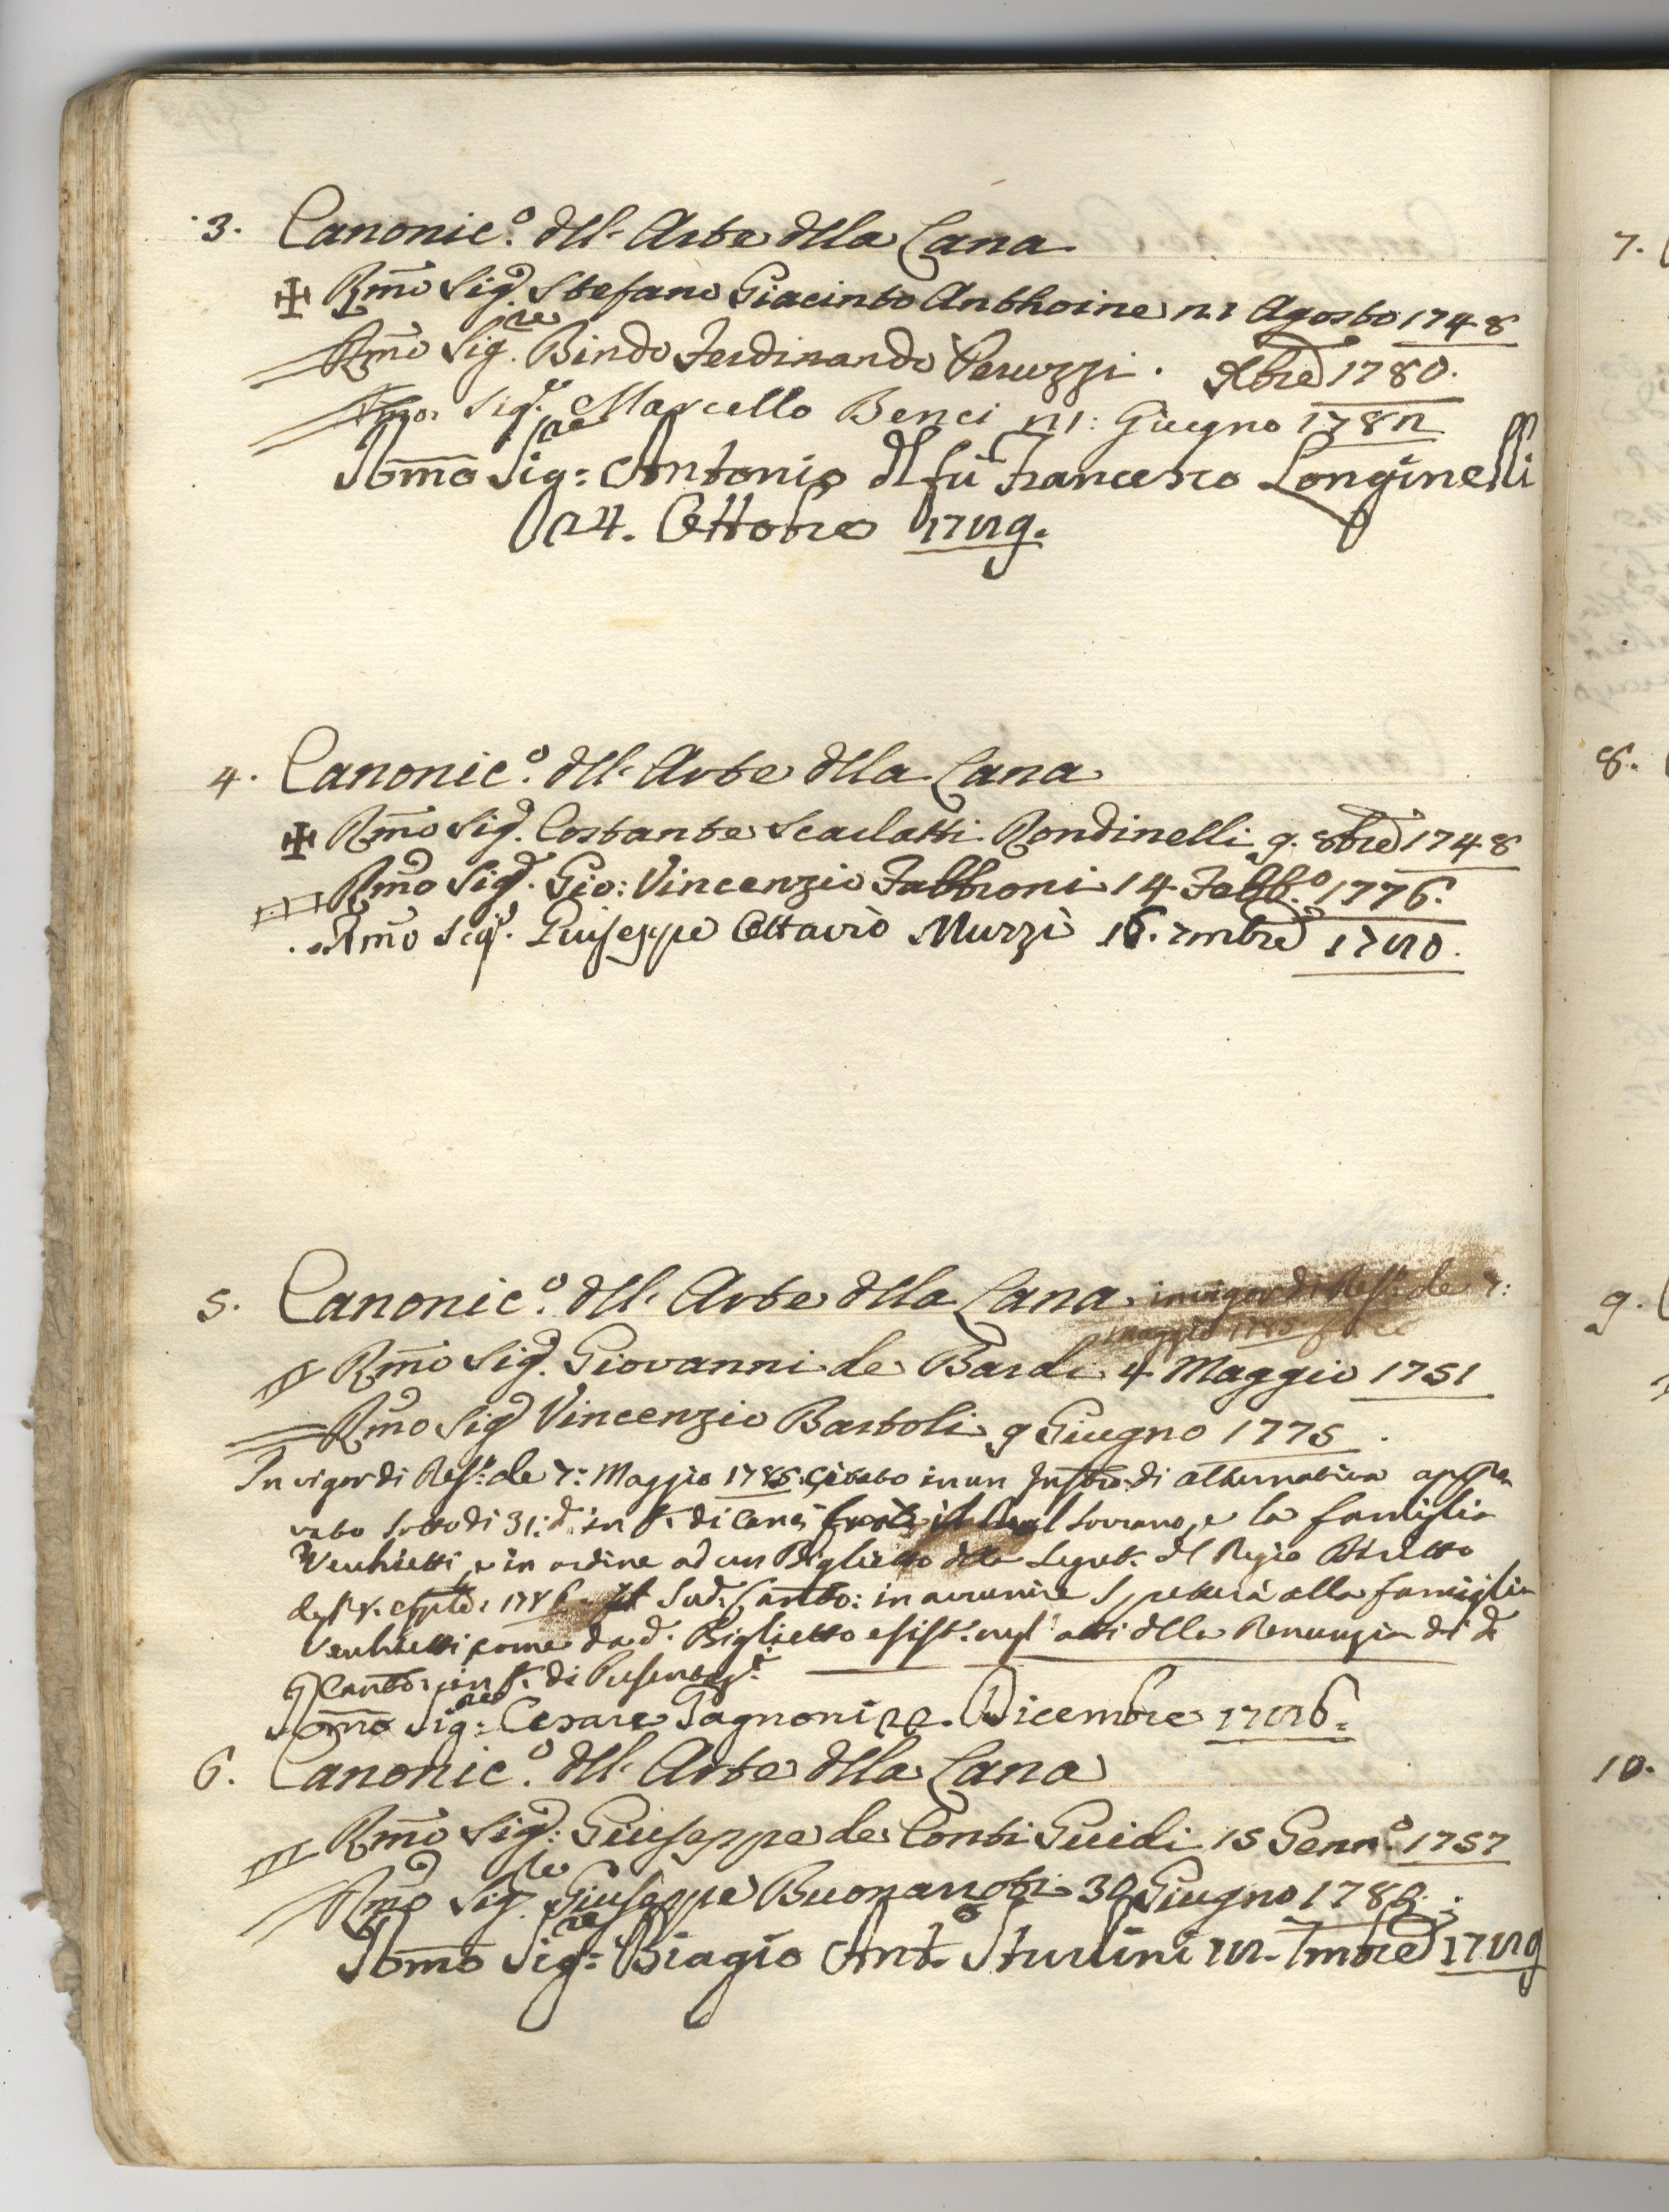 3. Canonic.º dll. Arte dlla Lana
Rmo Sig.re Stefano Giacinto Anthoine 21 Agosto 1748
Rmo Sig.re Bindo Ferdinando Peruzzi. Xbre 1780.
Rmo. Sig.re Marcello Benci 21: Giugno 1782
Rmo Sig:re Antonio dl fù Francesco Longinelli
24. Ottobre 1799.
4. Canonic.º dll. Arte dlla Lana
Rmo Sig.re Costante Scarlatti Rondinelli 9. 8bre 1748
Rmo Sig.re Gio: Vincenzio Fabbroni 14 Febb.º 1776.
Rmo Sig.re Giuseppe Ottavio Muzzi 16. 7mbre 1790.
5. Canonic.º dll. Arte dlla Lana in vigor di Resc. de 7:
Maggio 1785
Rmo Sig.re Giovanni de Bardi 4 Maggio 1751
Rmo Sig.re Vincenzio Bartoli 9 Giugno 1775.
In vigor di Resc: de 7: Maggio 1785. citato in un Instro: di alternativa appro
vato sotto di 31: do in f. di Cens. Sovrano, e la famiglia
Vecchietti, e in ordine ad un Biglietto dlla Segret. dl Regio Diritto
1786. Il Sud. Canto: in avvenire Spetterà alla famiglia
Vecchietti come da d. Biglietto esist: negl' atti dlla Renunzia di do
Canto: in f. di Presentaz:e
Rmo Sig:re Cesare Pagnoni 22. Dicembre 1796.
6. Canonic.º dll. Arte dlla Lana
Rmo Sig.re Giuseppe de Conti Guidi 15 Genn.º 1757
Rmo Sig.re Giuseppe Buonaroti 30 Giugno 1789.
Rmo Sig:re Biagio Ant. Sturlini 7mbre 1799
7.
8.
9.
10.